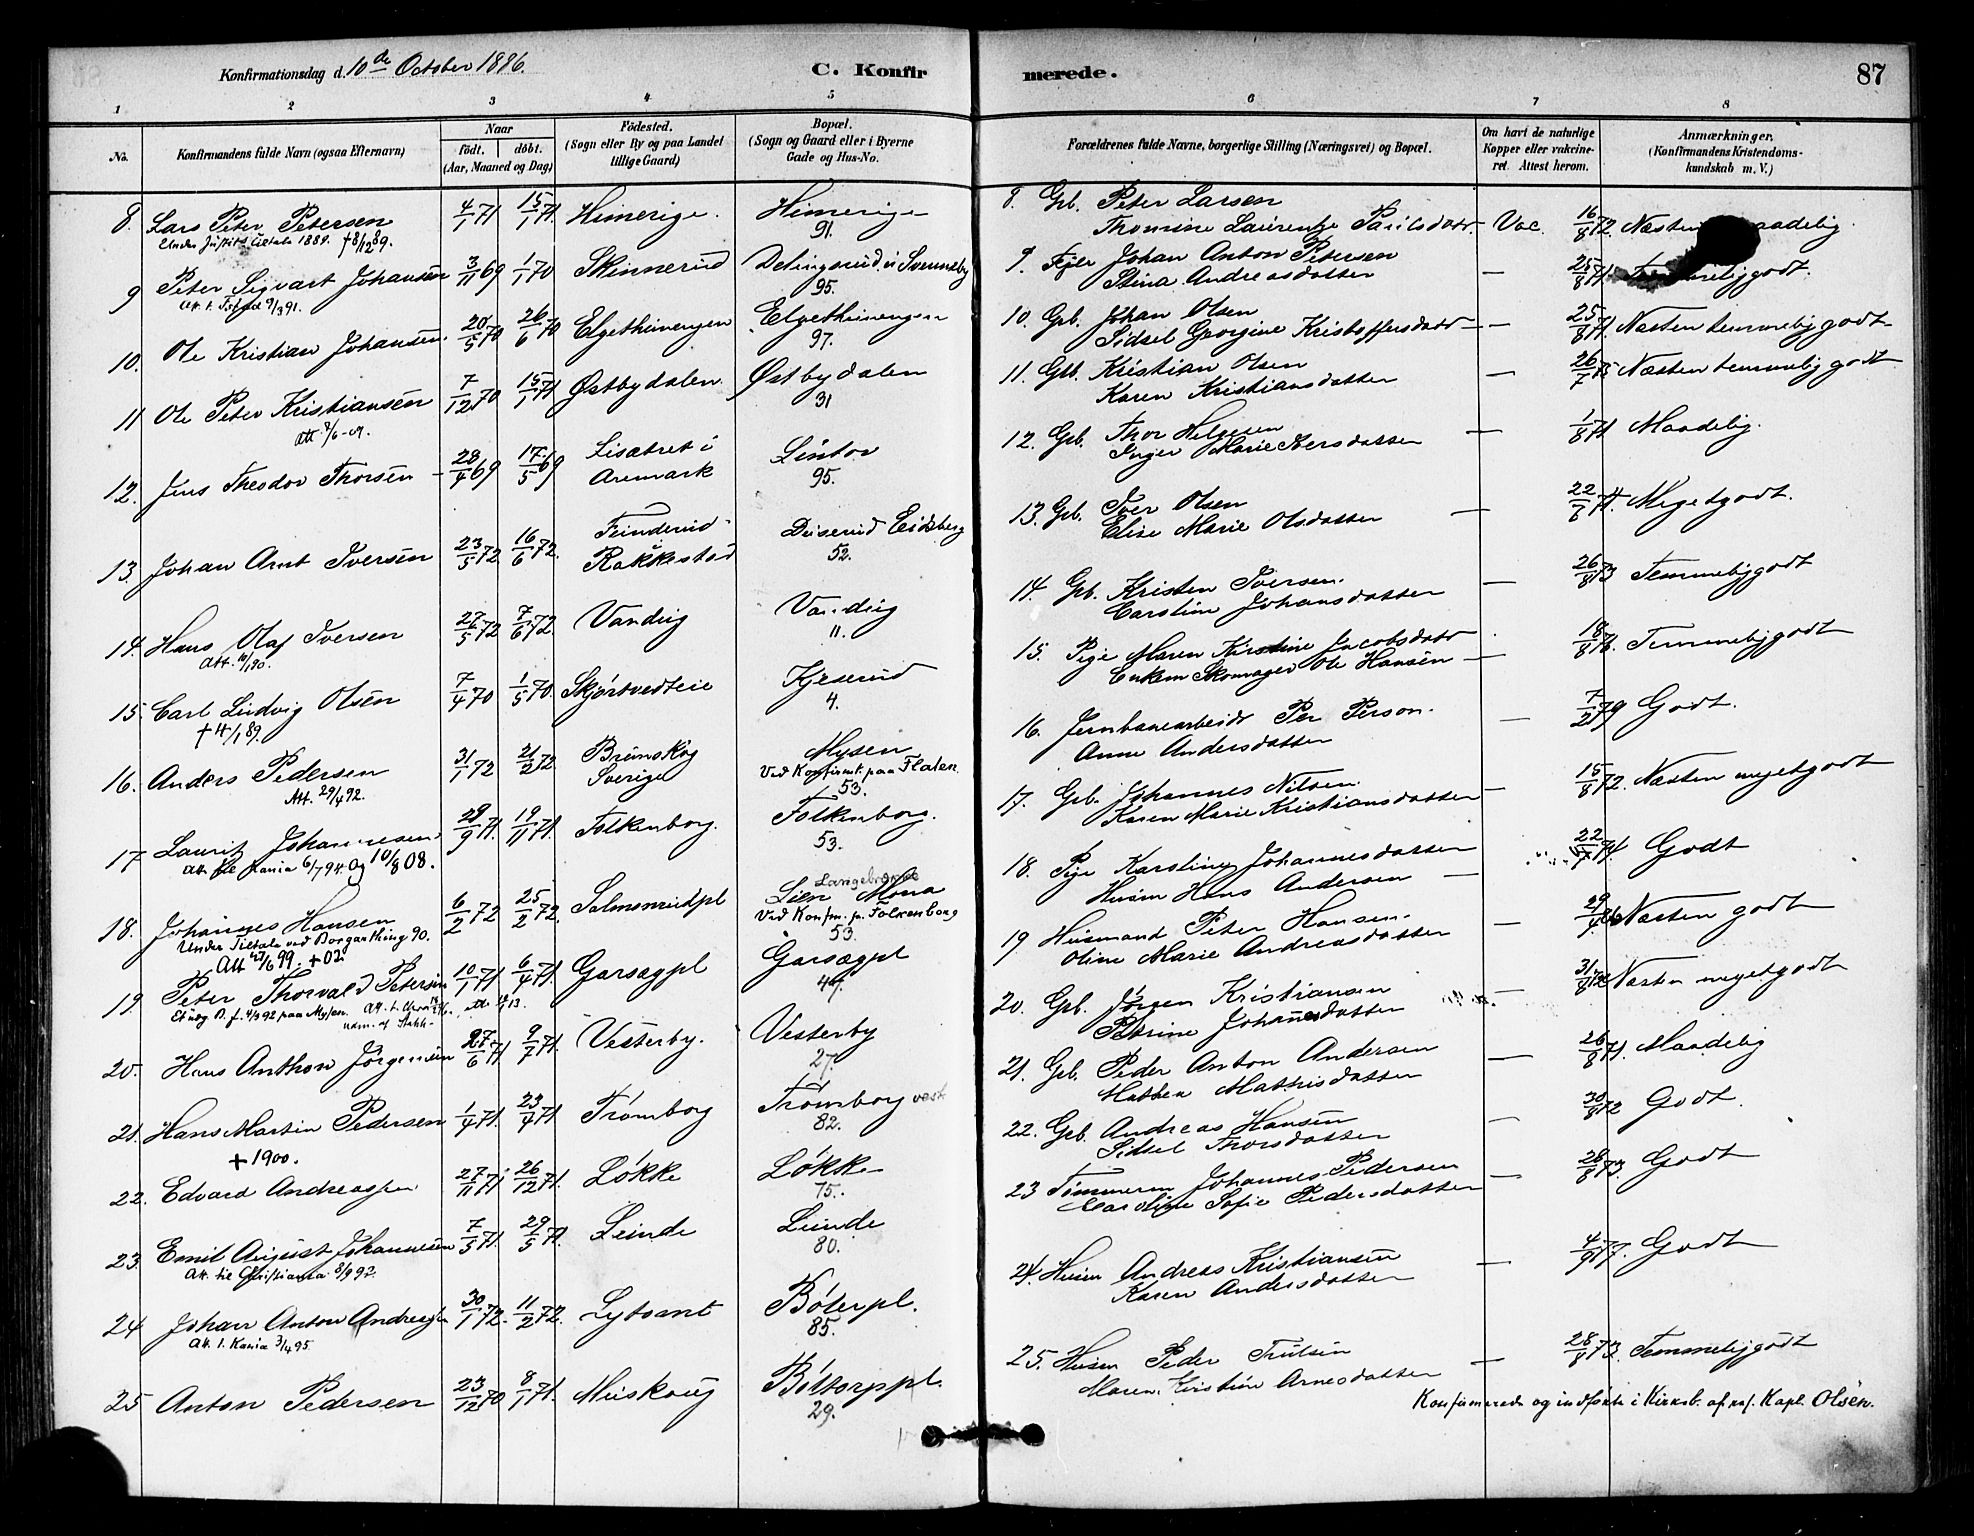 Konfirmationsdag d. 10de October 1886.
C. Konfir
merede.
87
1 2 3 4 5 6 7 8
No.
Konfirmandens fulde Navn (ogsaa Efternavn)
Naar
födt. döbt.
(Aar, Maaned og Dag)
Födested.
(Sogn eller By og paa Landet
tillige Gaard)
Bopæl.
(Sogn og Gaard eller i Byerne
Gade og Hus-No.
Forældrenes fulde Navne, borgerlige Stilling (Næringsvei) og Bopæl.
Om havt de naturlige
Kopper eller vakcine-
ret. Attest herom.
Anmærkninger.
(Konfirmandens Kristendoms-
kundskab m. V.)
8. Lars Peter Petersen 4/1 71 15/1 71. Himerige. Himerige 91.
Under Justits tiltale 1889. † 8/12 89.
8. Gb. Peter Larsen
Thomine Laurentze Paulsdatr. Vac. 16/8 72. Næsten maadelig
9 Peter Sigvart Johansen 3/11 69 1/1 70 Skinnerud Delingsrud i Sonneby 95.
Att. t. 9/3 91.
9. Johan Anton Petersen
Stina Andreasdatter — 25/8 71. Temmeliggodt.
10. Ole Kristian Johansen 20/5 70 26/6 70 Elgethvingen Elgethvingen 97.
10. Gb. Johan Olsen
Sidsel Georgine Kristoffersdatr — 25/8 71. Næsten temmelig godt
11 Ole Peter Kristiansen 7/12 70 15/1 71 Østbydalen Østbydalen 31
Att 7/6-09.
11. Gb. Kristian Olsen
Karen Kristiansdatter — 26/7 75 Næsten temmelig godt
12. Jens Theodor Thorsen 28/4 69 17/5 69 Lisætret i Aremark Lintor 95.
12. Gb. Thor Helgesen
Inger Marie Iversdatter 1/8 71 Maadelig.
13. Johan Arnt Iversen 23/5 72 16/6 72. Rakkestad Duserud Eidsberg 52.
13. Gb. Iver Olsen
Elise Marie Olsdatter — 22/8 74. Megetgodt.
14. Hans Olaf Iversen 27/5 72 7/6 72 Vandug Vandug 11.
Att. 10/1 90.
14. Gb. Kristen Iversen.
Caroline Johansdatter — 26/8 73 Temmeliggodt
15. Carl Ludvig Olsen 7/4 70 1/5 70. Skjørtvedteie Kjeserud 4.
† 14/1 89.
15. Pige Maren Kirstine Jacobsdatr
Enkem Skomager Ole Hansen — 18/8 76. Temmeliggodt
16. Anders Pedersen 31/1 72 21/2 72. Brunskog Sverige Mysen
Ved Konfirmt. paa Flaten. 53.
Att. 29/4 92.
16. Jernbanearbeidr Per Person.
Anne Andersdatter — 7/2 79 Godt.
17. Laurits Johannesen 28/9 71. 19/11 71. Folkenborg. Folkenborg. 53.
Att. til Kania 6/7 94. Og 10/8 08.
17. Gb. Johannes Nilsen
Karen Marie Kristiansdatter — 15/8 72. Næsten megetgodt
18. Johannes Hansen 6/2 72 25/2 72. Salmonrudpl Lien Mona
Ved Konfm. p. Folkenborg 53.
Under Tiltale ved Borgarthing 90.
Att 27/6 99. + 02.
18. Pige Karoline Johannesdatter
Husm Hans Andersen — 22/7 74 Godt
19. Peter Thorvald Petersen 10/1 71 6/4 71. Garsægpl Garsægpl 47.
19 Husmand Peter Hansen.
Oline Marie Andreasdatter — Næsten godt
20. Hans Anthon Jørgensen 27/6 71 9/7 71. Vesterby. Vesterby 27.
20. Gb. Jørgen Kristiansen
Petrine Johannesdatter — 31/8 72 Næsten megetgodt
21. Hans Martin Pedersen 1/4 71. 23/4 71. Trömborg Trömborg vest 82.
+ 1900.
21. Gb. Peder Anton Andersen
Mathea Mathisdatter — 26/8 71. Maadelig
22. Edvard Andreassen 27/11 71 26/12 71. Løkke Løkke 75.
22. Gb. Andreas Hansen
Sidsel Thorsdatter — 30/8 72 Godt.
23. Emil August Johannesen 7/5 71. 29/5 71. Leinde Leinde 80.
Att. til Christiania 8/9 92.
23 Tömmerm Johannes Pedersen
Caroline Sofie Pedersdatter — 28/8 73. Godt
24 Johan Anton Andreassen 30/1 72. 11/2 72. Lytomt Böterpl. 85.
Att. t. Kania 3/4 95.
24. Husm Andreas Kristiansen
Karen Andersdatter — 4/9 77. Godt
25 Anton Pedersen 23/12 70 8/1 71. Muskoug Böttorppl. 29.
25. Husm Peder Trulsen
Maren Kristine Arnesdatter — 28/8 73. Temmeliggodt
Konfirmerede og indførte i Kirkeb. af res. Kapl. Olsen.